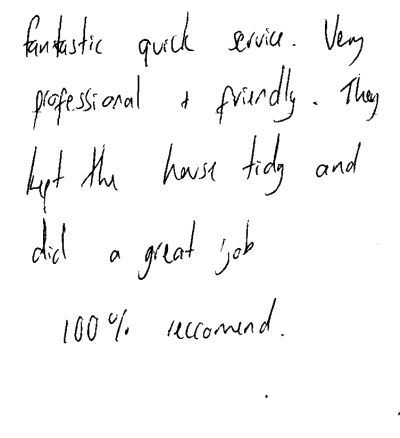 fantastic quick service. Very
professional + friendly. They
kept the house tidy and
did a great job
100% reccomend.